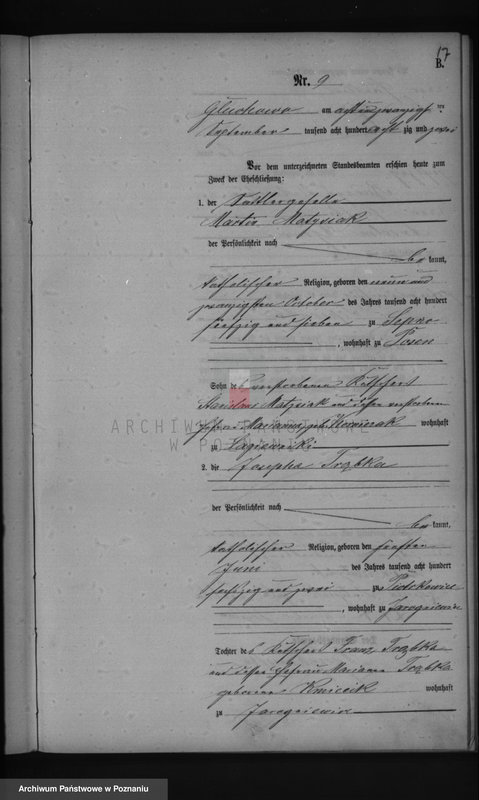 17
B.
Nr. 9
Gluchowo am acht und zwanzigsten
September tausend acht hundert acht zig und zwei
Vor dem unterzeichneten Standesbeamten erschien heute zum
Zweck der Eheschließung:
1. der Sattlergeselle
Martin Matysiak
der Persönlichkeit nach
be kannt,
katholischer Religion, geboren den neun und
zwanzigsten October des Jahres tausend acht hundert
fünfzig und sieben zu Sepno
, wohnhaft zu Posen
Sohn des verstorbenen Kutschers
Stanislaus Matysiak und dessen verstorbenen
Ehefrau Marianna, geb. wohnhaft
zu Lagiewniki
ARCHIWUM PAŃSTWOWE
W POZNANIU
2. die Josepha Trzbka
der Persönlichkeit nach
be kannt,
katholischer Religion, geboren den fünften
Juni des Jahres tausend acht hundert
sechszig und zwei zu Piotrkowice
, wohnhaft zu Jarogniewice
Tochter des Kutschers Franz Trzbka
und dessen Ehefrau Marianna Trzbka
geborene Kmiecik wohnhaft
zu Jarogniewice
Archiwum Państwowe w Poznaniu